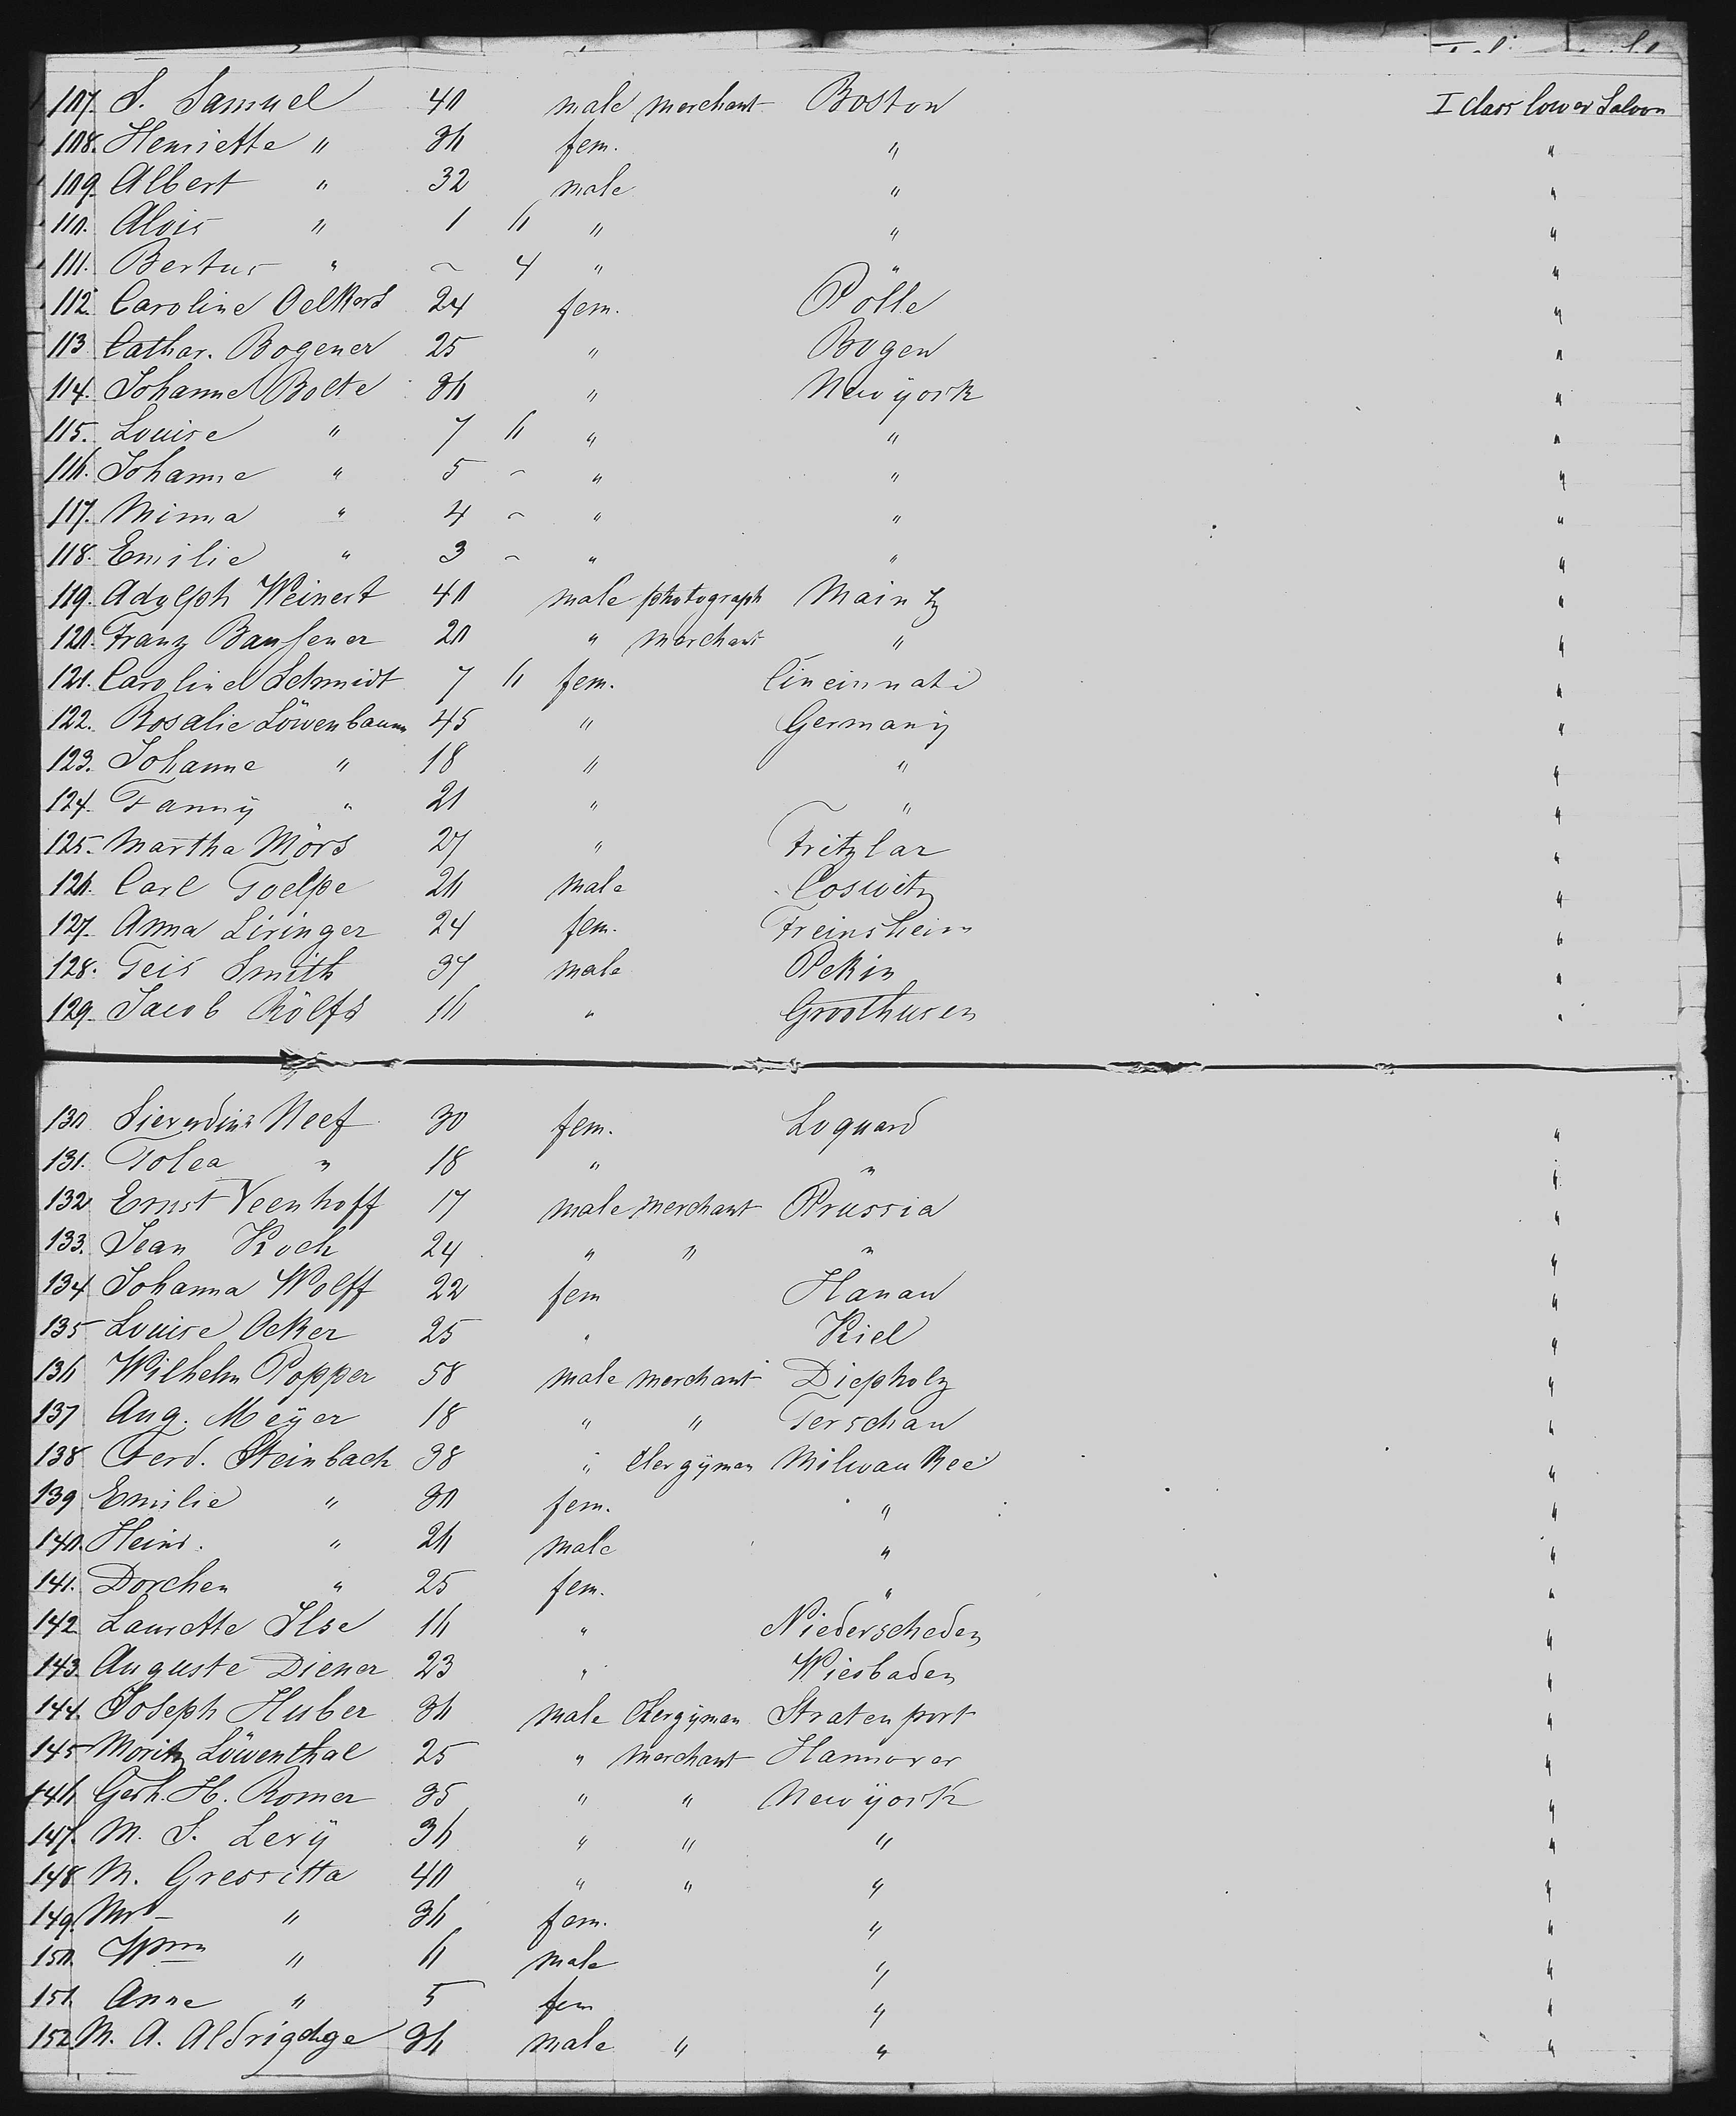 107. S. Samuel 40 male merchant Boston I Class lower Saloon
108. Henriette " 36 fem. " "
109. Albert " 32 male " "
110. Alois " 1 6 " " "
111. Bertus " ~ 4 " " "
112. Caroline Oelkers 24 fem. Polle "
113 Cathar. Bogener 25 " Bogen "
114. Johanne Bolte 36 " New ÿork "
115. Louise " 7 6 " " "
116. Johanne " 5 ~ " " "
117. Minna " 4 ~ " " "
118. Emilie " 3 ~ " " "
119. Adolph Weinert 40 male photograph Maintz "
120. Franz 20 " merchant " "
121. Caroline Schmidt 7 6 fem. Cincinnati "
122. Rosalie Löwenbaum 45 " Germanÿ "
123. Johanne " 18 " " "
124. Fannÿ " 21 " " "
125. Martha Mörs 27 " Fritzlar "
126. Carl Toelpe 26 male Coswitz "
127. Anna Liringer 24 fem. Freinsheim "
128. Geis Smith 37 male Pekin "
129. Jacob Rolfs 16 " Groothusen "
130 Neef 30 fem. Loquard "
131. Tolea " 18 " " "
132 Ernst Veenhoff 17 male merchant Prussia "
133. Jean Koch 24 " " " "
134 Johanna Wolff 22 fem Hanau "
135 Louise Acker 25 " Kiel "
136 Wilhelm Popper 58 male merchant Diepholz "
137 Aug. Meÿer 18 " " Terschau "
138 Ferd. Steinbach 38 " Clergÿman Milwaukee "
139 Emilie " 30 fem. " "
140. Heinr. " 26 male " "
141. Dorchen " 25 fem. " "
142 Laurette Ilse 16 " Niederscheden "
143. Auguste Diener 23 " Wiesbaden "
144. Joseph Huber 36 male Clergÿman Stratenport "
145 Moritz Löwenthal 25 " merchant Hannover "
146 Gerh. H. Romer 35 " " New ÿork "
147. M. S. Levÿ 36 " " " "
148 M. Gressitta 40 " " " "
149. Mrs " 36 fem. " "
150. Wm " 6 male " "
151. Anne " 5 fem " "
152 M. A. Aldrigdge 36 male " " "